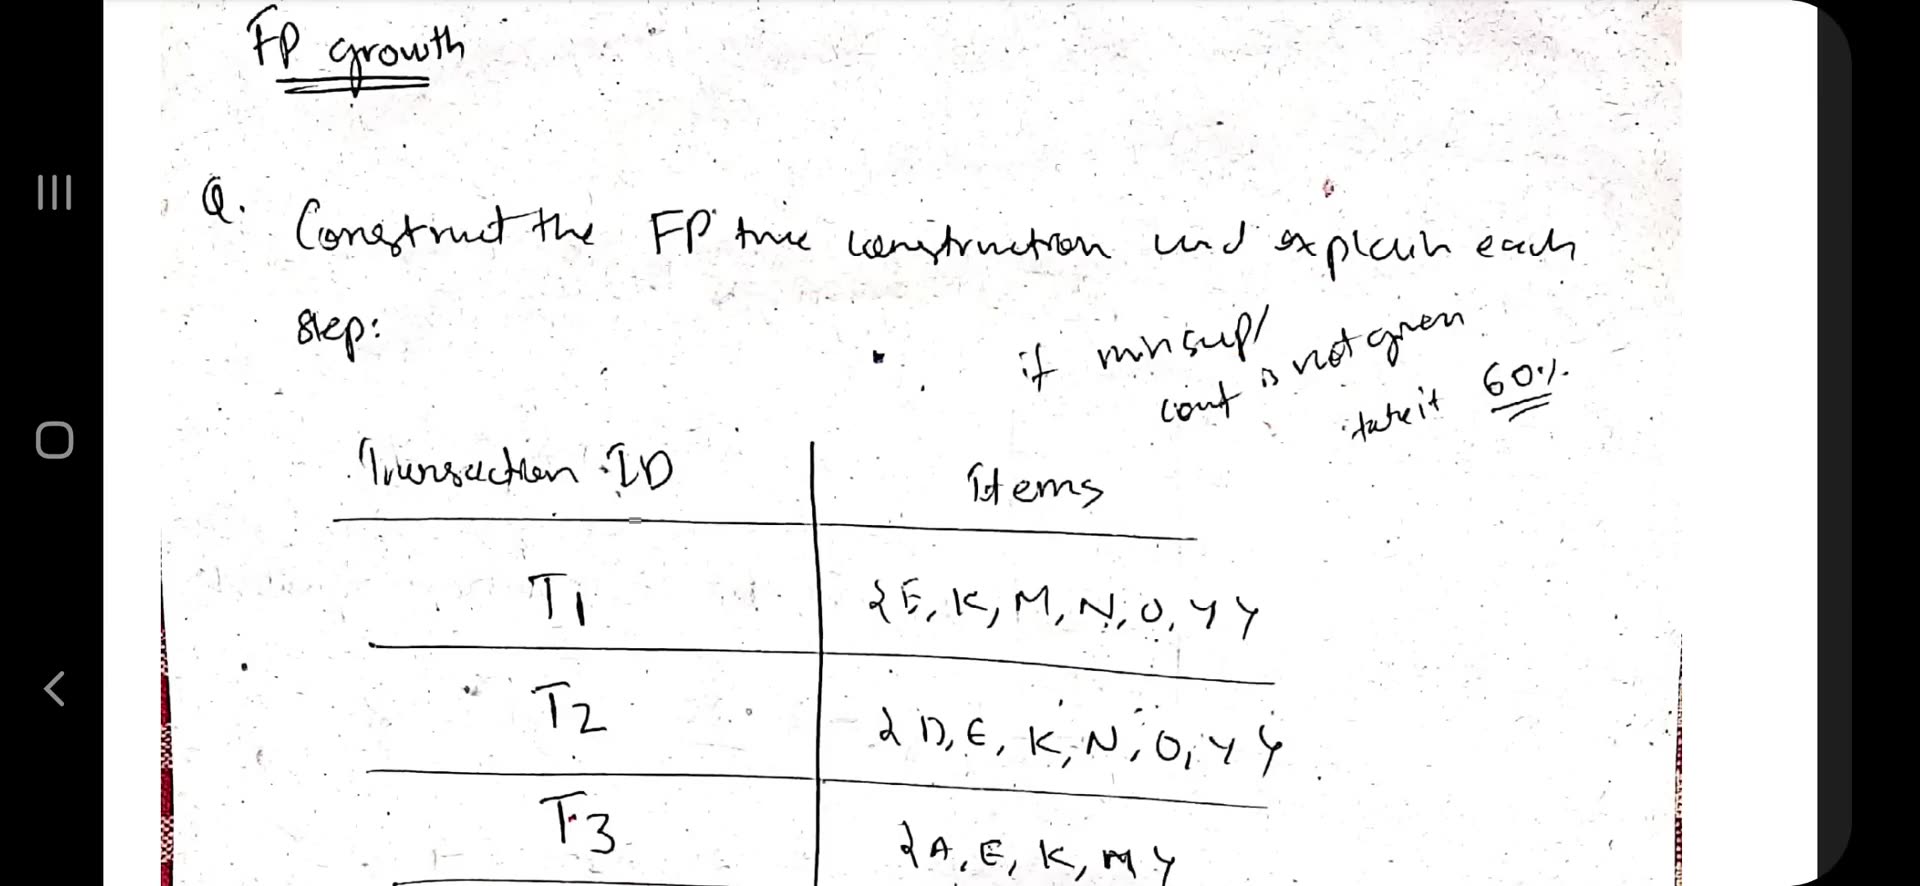 FP growth
Q. Construct the FP tree construction and explain each
step:
if minsup/
count is not given
take it 60%.
Transaction ID Items
T1 {E, K, M, N, O, Y}
T2 {D, E, K, N, O, Y}
T3 {A, E, K, M}